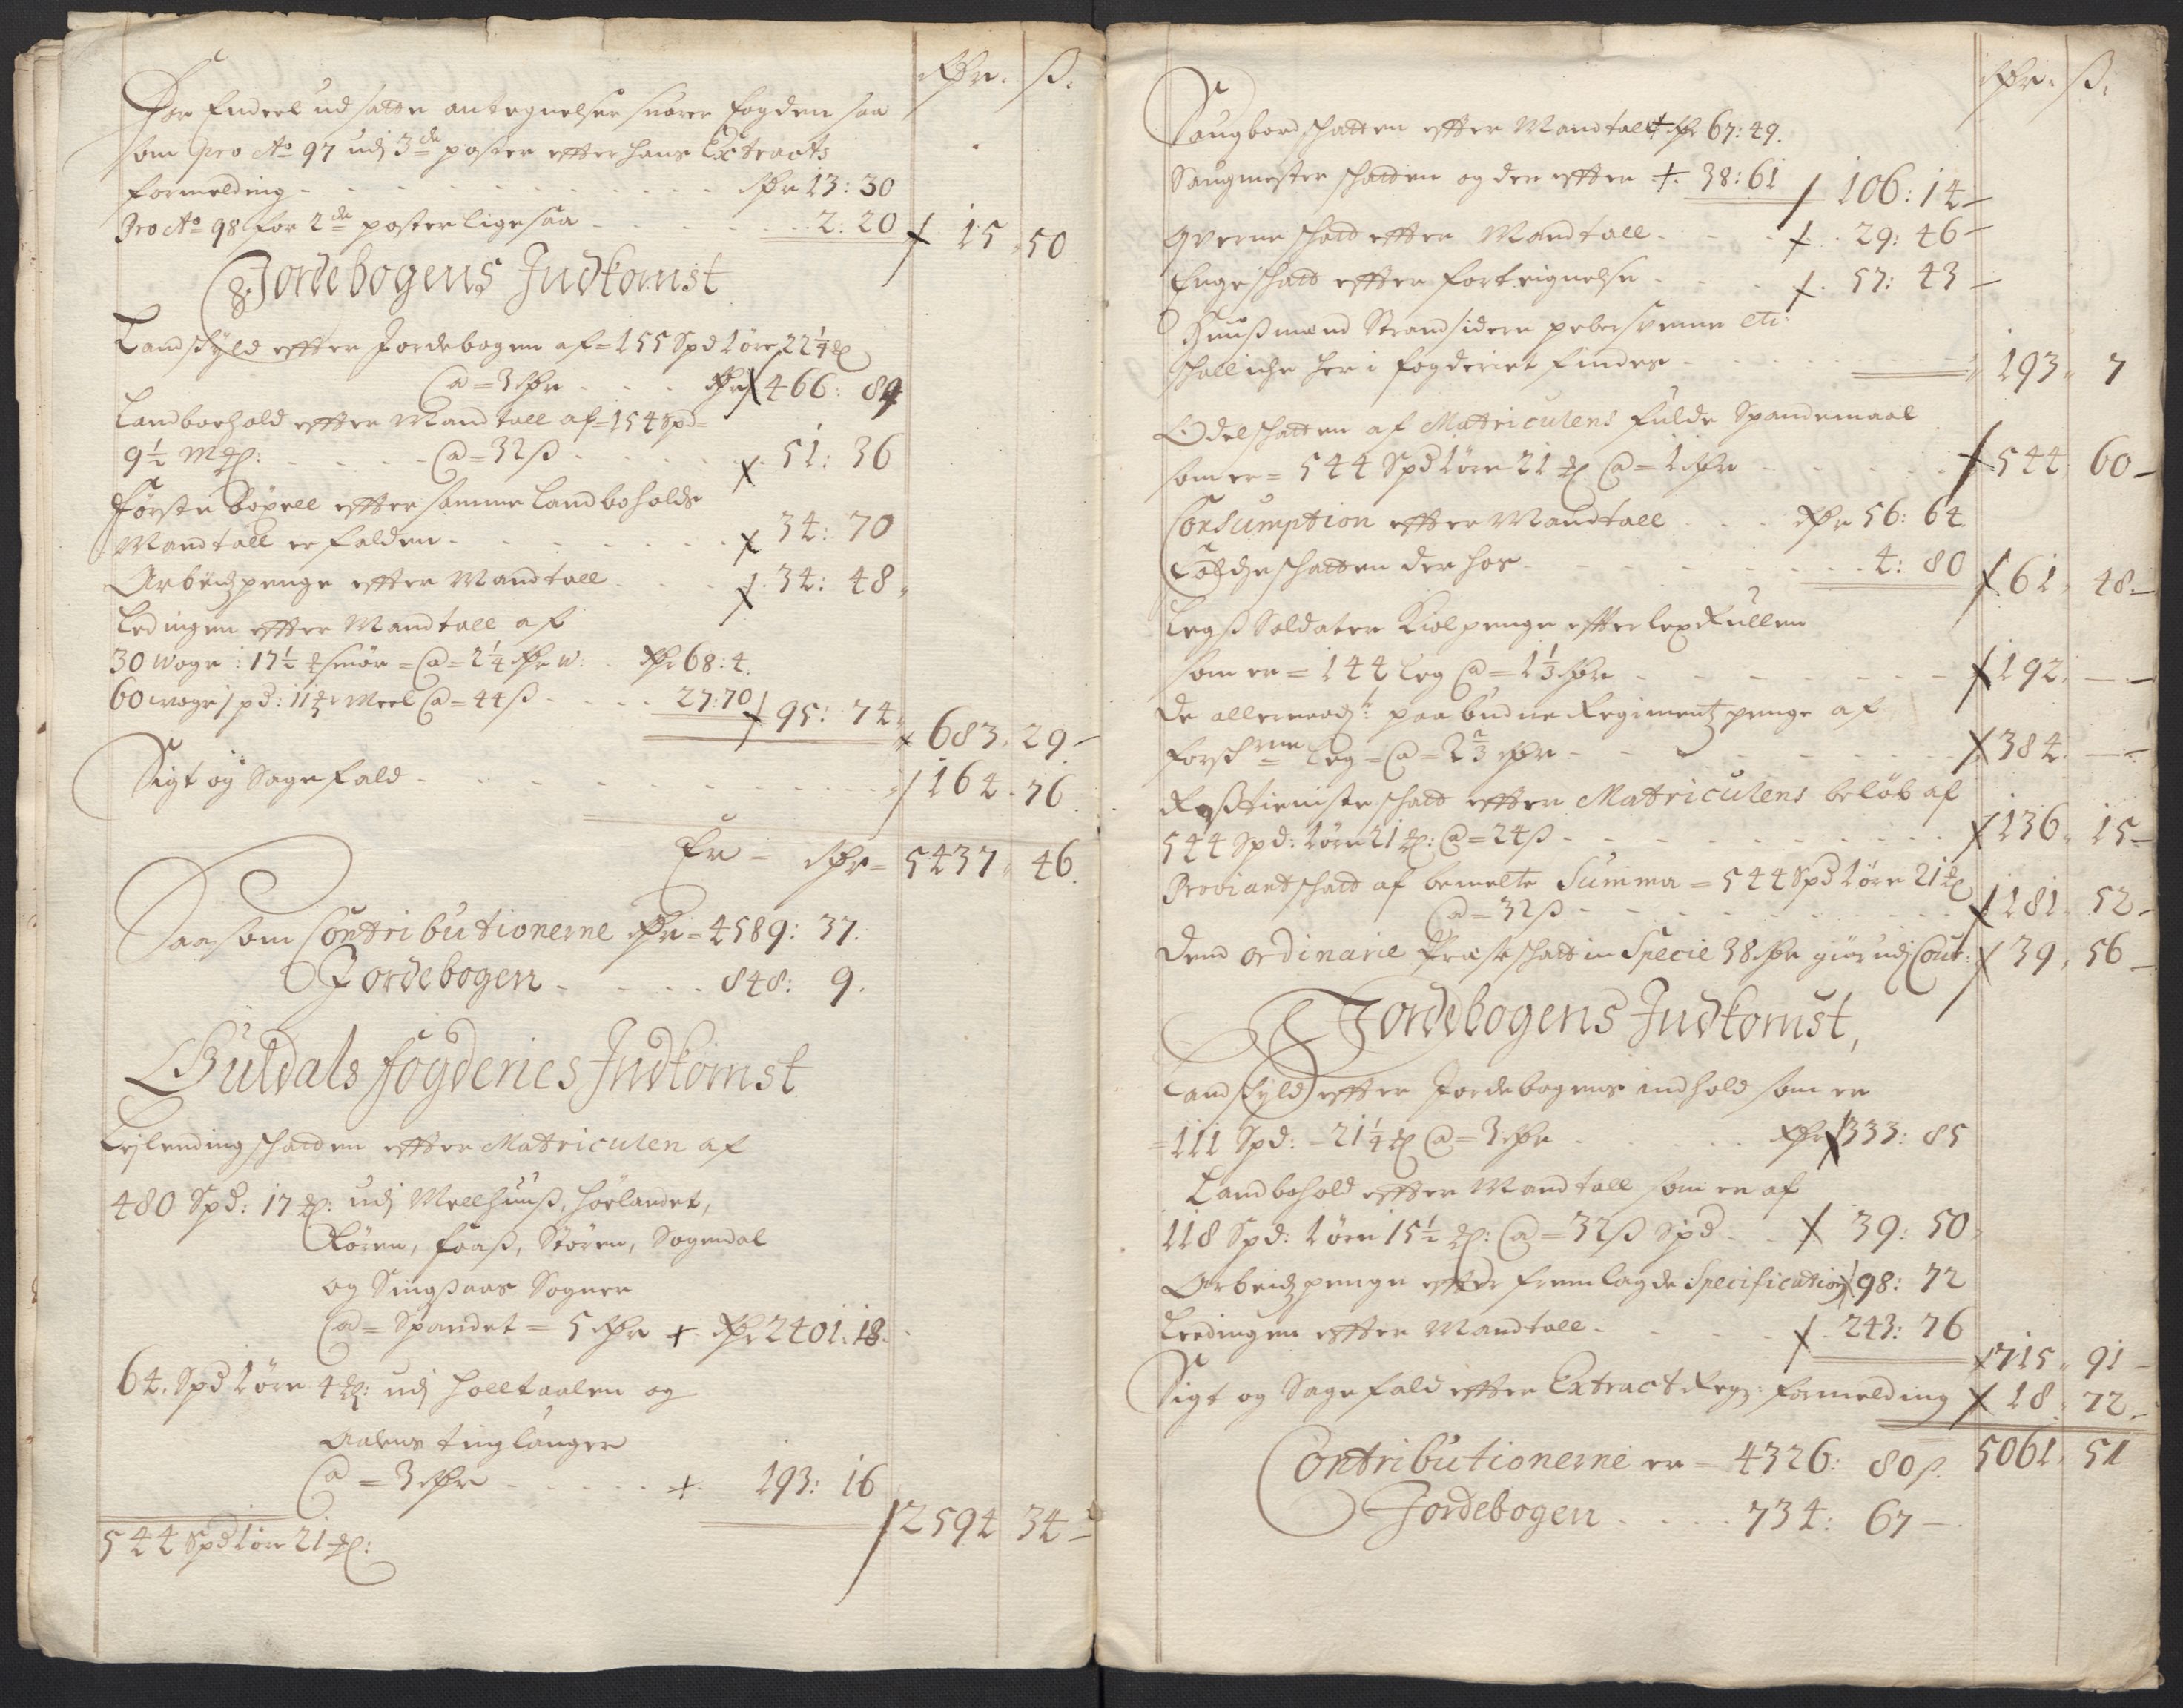 Rdr. ß:
For Endeel udsatte antegnelser svarer fogden saa
som pro Ao 97 udj 3de poster efter hans Extracts
formelding - - - Rdr 13: 30
Pro Ao 98 for 2de poster ligesaa - - - 2: 20 15 50
Jordebogens Indkomst
Landskyld effter Jordebogen af = 155 Spd 1 öre 22 1/4
@ = 3 Rdr - - - Rdr 466: 89
Landboehold effter Mandtall af = 154 Spd
9 1/2 M: - - - @ = 32 ß - - - 51: 36
Förste böxell effter samme Landboholds
Mandtall er falden - - - 34: 70
Arbeidzpenge effter Mandtall - - - 34: 48
Ledingen effter Mandtall af
30 Woge: 17 1/2 smör = @ = 2 1/4 Rdr w: Rdr 68: 4.
60 woge 1 pd: 11 Meel @ = 44 ß - - - 27: 70 95: 74 683. 29
Sigt og Sagefald - - - 164. 76
Er - Rdr = 5437 46.
Saasom Contributionerne Rdr = 4589: 37:
Jordebogen - - - 848: 9.
Guldals fogderies Indkomst
Leylending schatten effter Matriculen af
480 Spd: 17: udj Meelhuuß, Hörlandet,
Kören, Foaß, Stören, Sogendal
og Singsaas Sogner
@ = Spandet = 5 Rdr Rdr 2401: 18.
64. Spd 1 öre 4: udj Holltaalen og
Aalens tinglauger
@ = 3 Rdr - - - 193: 16
544 Spd 1 öre 21: 2594 34
Rdr. ß:
Saugbord schatten effter Mandtall Rdr 67: 49.
Saugmester schatten og der effter 38: 61 106: 14
Qverne schatt effter Mandtall - - - 29: 46
Enge schatt effter forteignelse - - - 57: 43
Huußmænd Strandsidere pebersvenne etc:
schall iche her i fogderiet findes - - - 193 7
Odelschatten af Matriculens fulde Spandemaal
som er = 544 Spd 1 öre 21 @ = 1 Rdr - - - 544 60
Consumption effter Mandtall - - - Rdr 56: 64.
Follcheschatten der hos - - - 4: 80 61. 48
Legß Soldater Kiolpenge effter lexrullen
som er = 144 Leg @ = 1 1/3 Rdr - - - 192. —
De allernaadt: paabudne Regimentzpenge af
forschrne Leg = @ = 2 2/3 Rdr - - - 384. —
Roßtieniste schatt effter Matriculens belöb af
544 Spd: 1 öre 21: @ = 24 ß - - - 136. 15
Proviantschatt af bemelte Summa = 544 Spd 1 öre 21
@ = 32 ß - - - 181. 52
Dend ordinarie Præsteschatt in Specie 38 Rdr giör udj Cour: 39. 56
Jordebogens Indkomst,
Landskyld effter Jordebogens indhold som er
= 111 Spd: - 21 1/4 @ = 3 Rdr - - - Rdr 333: 85
Landbohold effter Mandtall som er af
118 Spd: 1 öre 15 1/2: @ = 32 ß Spd - - - 39: 50
Arbeidzpenge effter fremlagde Specification 98: 72
Leedingen effter Mandtall - - - 243: 76 715. 91
Sigt og Sagefald effter Extract Regs: formelding 18. 72
Contributionerne er = 4326: 80 ß. 5061. 51
Jordebogen - - - 734: 67